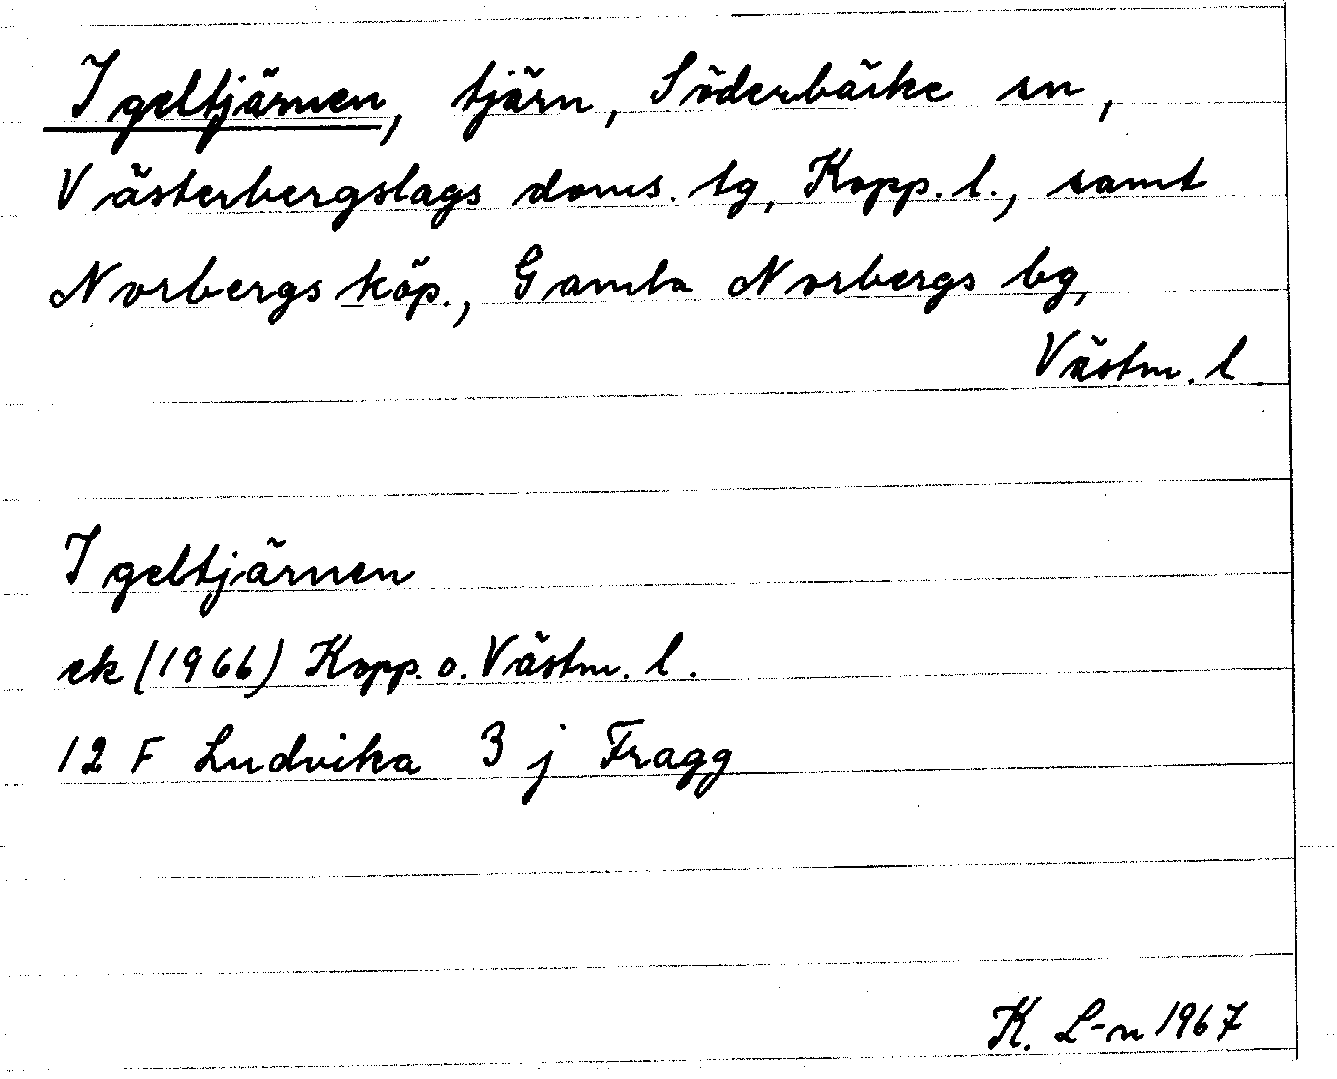 Igeltjärnen, tjärn, Söderbärke sn,
Västerbergslags doms. tg, Kopp. l., samt
Norbergs köp., Gamla Norbergs bg,
Västm. l
Igeltjärnen
ek (1966) Kopp. o. Västm. l.
12 F Ludvika 3 j Fragg
K. L-n 1967